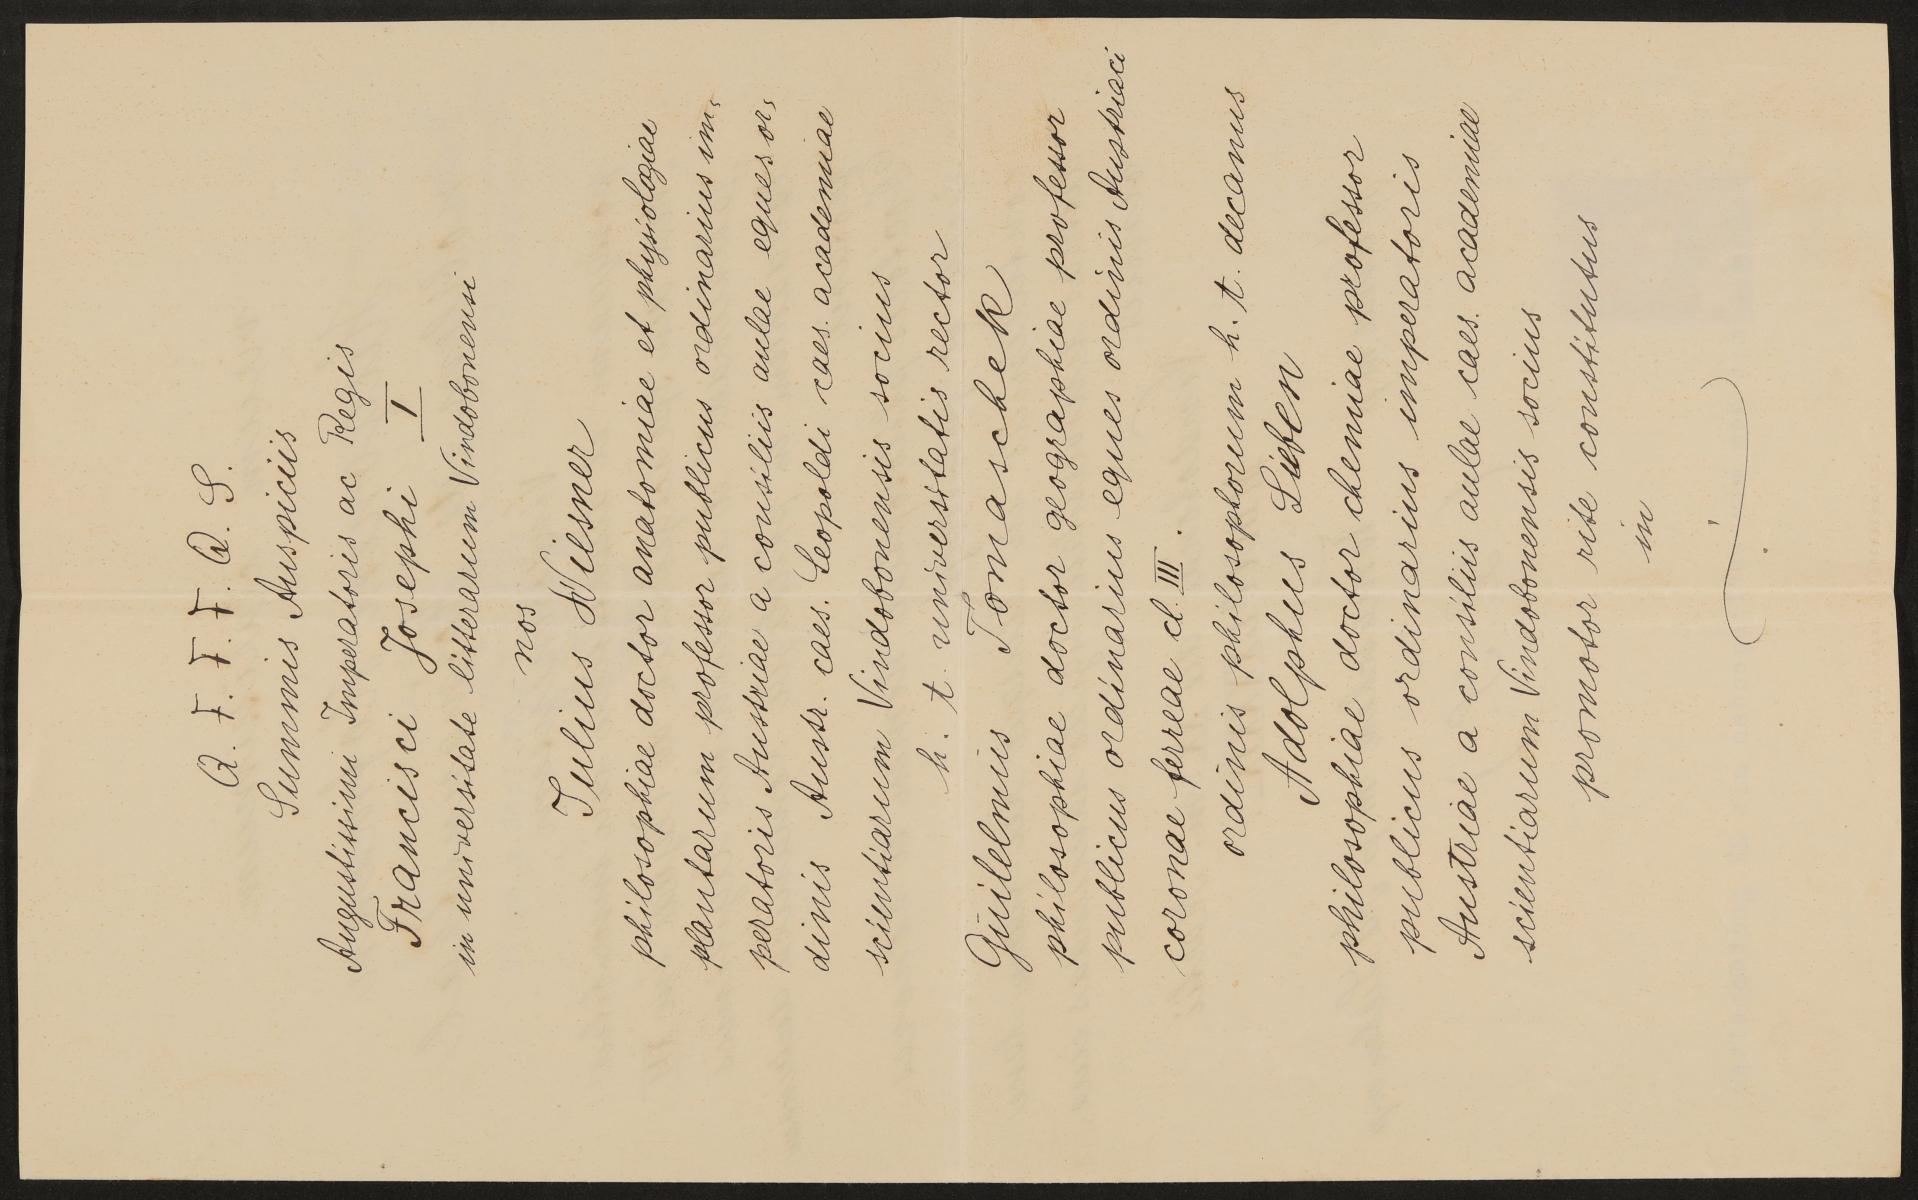 Q. F. F. F. Q. S.
Summis Auspiciis
Augustissimi Imperatoris ac Regis
Francisci Josephi I
in universitate litterarum Vindobonensi
nos
Julius Wiesner
philosophiae doctor anatomiae et physiologiae
plantarum professor publicus ordinarius im,
peratoris Austriae a consiliis aulae eques or,
dinis Austr. caes. Leopoldi caes. academiae
scientiarum Vindobonensis socius
h. t. universitatis rector
Guilelmus Tomaschek
philosophiae doctor geographiae professor
publicus ordinarius eques ordinis Austriaci
coronae ferreae cl. III.
ordinis philosophorum h. t. decanus
Adolphus Lieben
philosophiae doctor chemiae professor
publicus ordinarius imperatoris
Austriae a consiliis aulae caes. academiae
scientiarum Vindobonensis socius
promotor rite constitutus
in